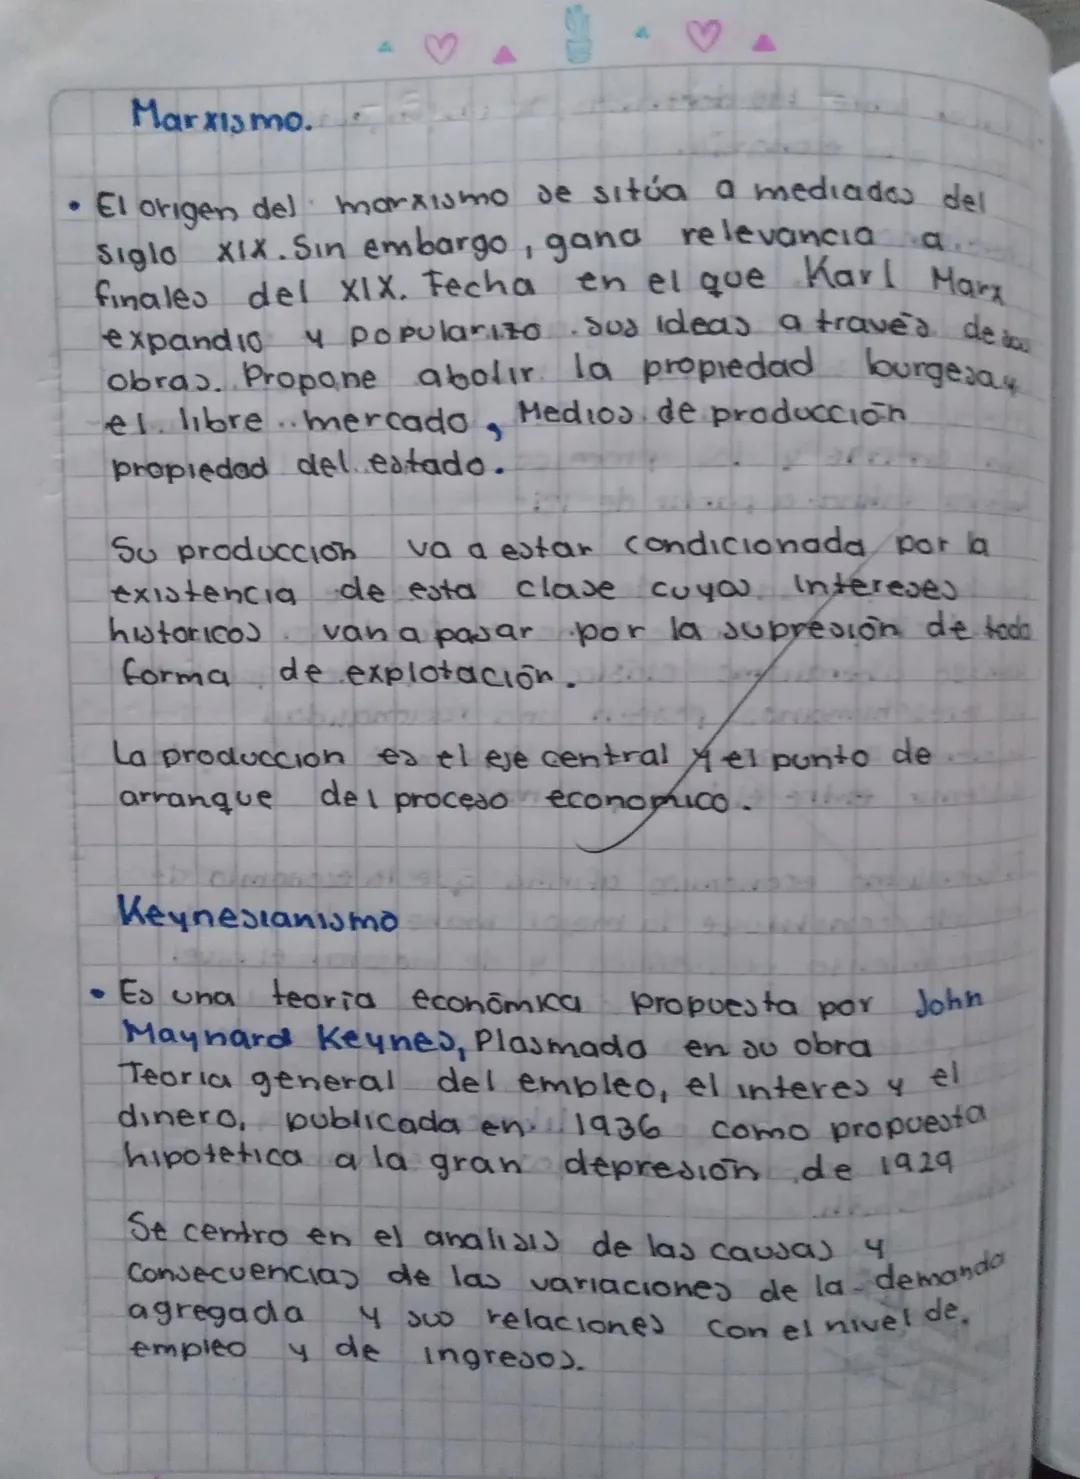 Marxismo.
• El origen del marxismo se sitúa a mediados del
siglo XIX. Sin embargo, gana relevancia a
finales del XIX. Fecha en el que Karl Marx
expandio y popularizo sus ideas a través de sus
obras. Propone abolir la propiedad burgesa y
el libre mercado, Medios de producción
propiedad del estado.
Su produccion va a estar condicionada por la
existencia de esta clase cuyos intereses
historicos van a pasar por la supresión de toda
forma de explotación.
La produccion es el eje central y el punto de
arranque del proceso economico.
Keynesianismo
• Es una teoria económica propuesta por John
Maynard Keynes, Plasmada en su obra
Teoria general del empleo, el interes y el
dinero, publicada en 1936 como propuesta
hipotetica a la gran depresión de 1929
Se centro en el analisis de las causas y
consecuencias de las variaciones de la demanda
agregada y sus relaciones con el nivel de
empleo y de ingresos.